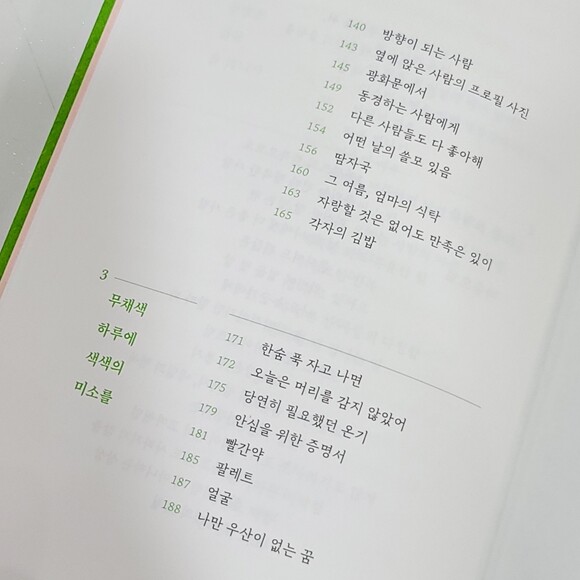 140 방향이 되는 사람
143 옆에 앉은 사람의 프로필 사진
145 광화문에서
149 동경하는 사람에게
152 다른 사람들도 다 좋아해
154 어떤 날의 쓸모 있음
156 땀자국
160 그 여름, 엄마의 식탁
163 자랑할 것은 없어도 만족은 있이
165 각자의 김밥
3
무채색
하루에
색색의
미소를
171 한숨 푹 자고 나면
172 오늘은 머리를 감지 않았어
175 당연히 필요했던 온기
179 안심을 위한 증명서
181 빨간약
185 팔레트
187 얼굴
188 나만 우산이 없는 꿈